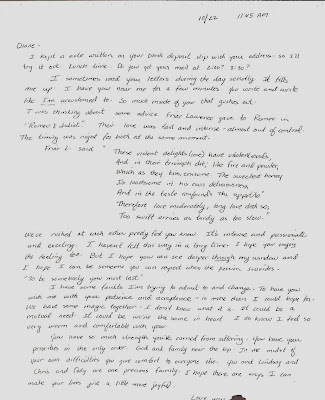 10/22 11:45 AM
Diane -
I kept a note written on your bank deposit slip with your address - so I'll
try it out. Lunch time. Do you get your mail at 2:30? 3:30?
I sometimes need your letters during the day secretly. It fills
me up. I have you near me for a few minutes. You write and write
like I'm accustomed to. So much inside of you that gushes out.
I was thinking about some advice Friar Lawrence gave to Romeo in
"Romeo & Juliet". Their love was fast and intense - almost out of control.
The timing was right for both at the same moment.
Friar L. said "These violent delights (love) have violent ends,
And in their triumph die, like fire and powder,
Which as they kiss, consume. The sweetest honey
Is loathsome in his own deliciousness,
And in the taste confounds the appetite.
Therefore love moderately, long love doth so;
Too swift arrives as tardy as too slow."
We've rushed at each other pretty fast you know. It's intense and passionate
and exciting. I haven't felt this way in a long time. I hope your enjoy
the feeling too. But I hope you can see deeper through my window and
I hope I can be someone you can respect when the passion subsides.
"To be somebody you most last"
I have some faults I'm trying to admit to and change. To have you
with me with your patience and acceptance is more than I could hope for.
We have some magic together. I don't know what it is. It could be a
mutual need. It could be we're the same in heart. I do know I feel so
very warm and comfortable with you
You have so much strength you've earned from suffering. You have your
priorities in the only order. God and family near the top. In the midst of
your own difficulties you give comfort to everyone else. You and Lindsay and
Chris and Cody are one precious family. I hope there are ways I can
make your lives just a little more joyful.
Love you